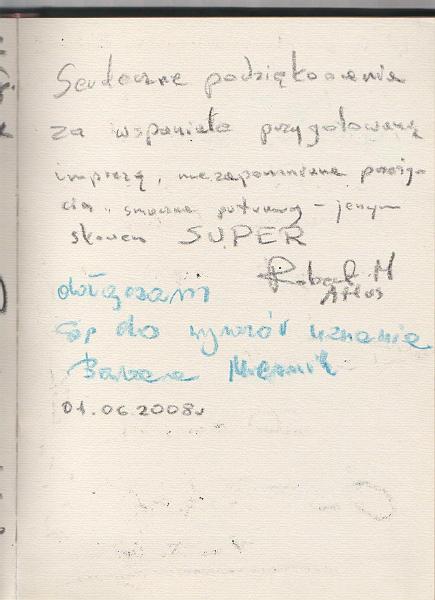 Serdeczne podziękowania
za wspaniale przygotowaną
imprezę, niezapomniane przeży-
cia, smaczne potrawy - jenym
słowem SUPER
Robert M
Atlas
dołączam
się do wyrazów uznania
Barbara
01.06.2008r